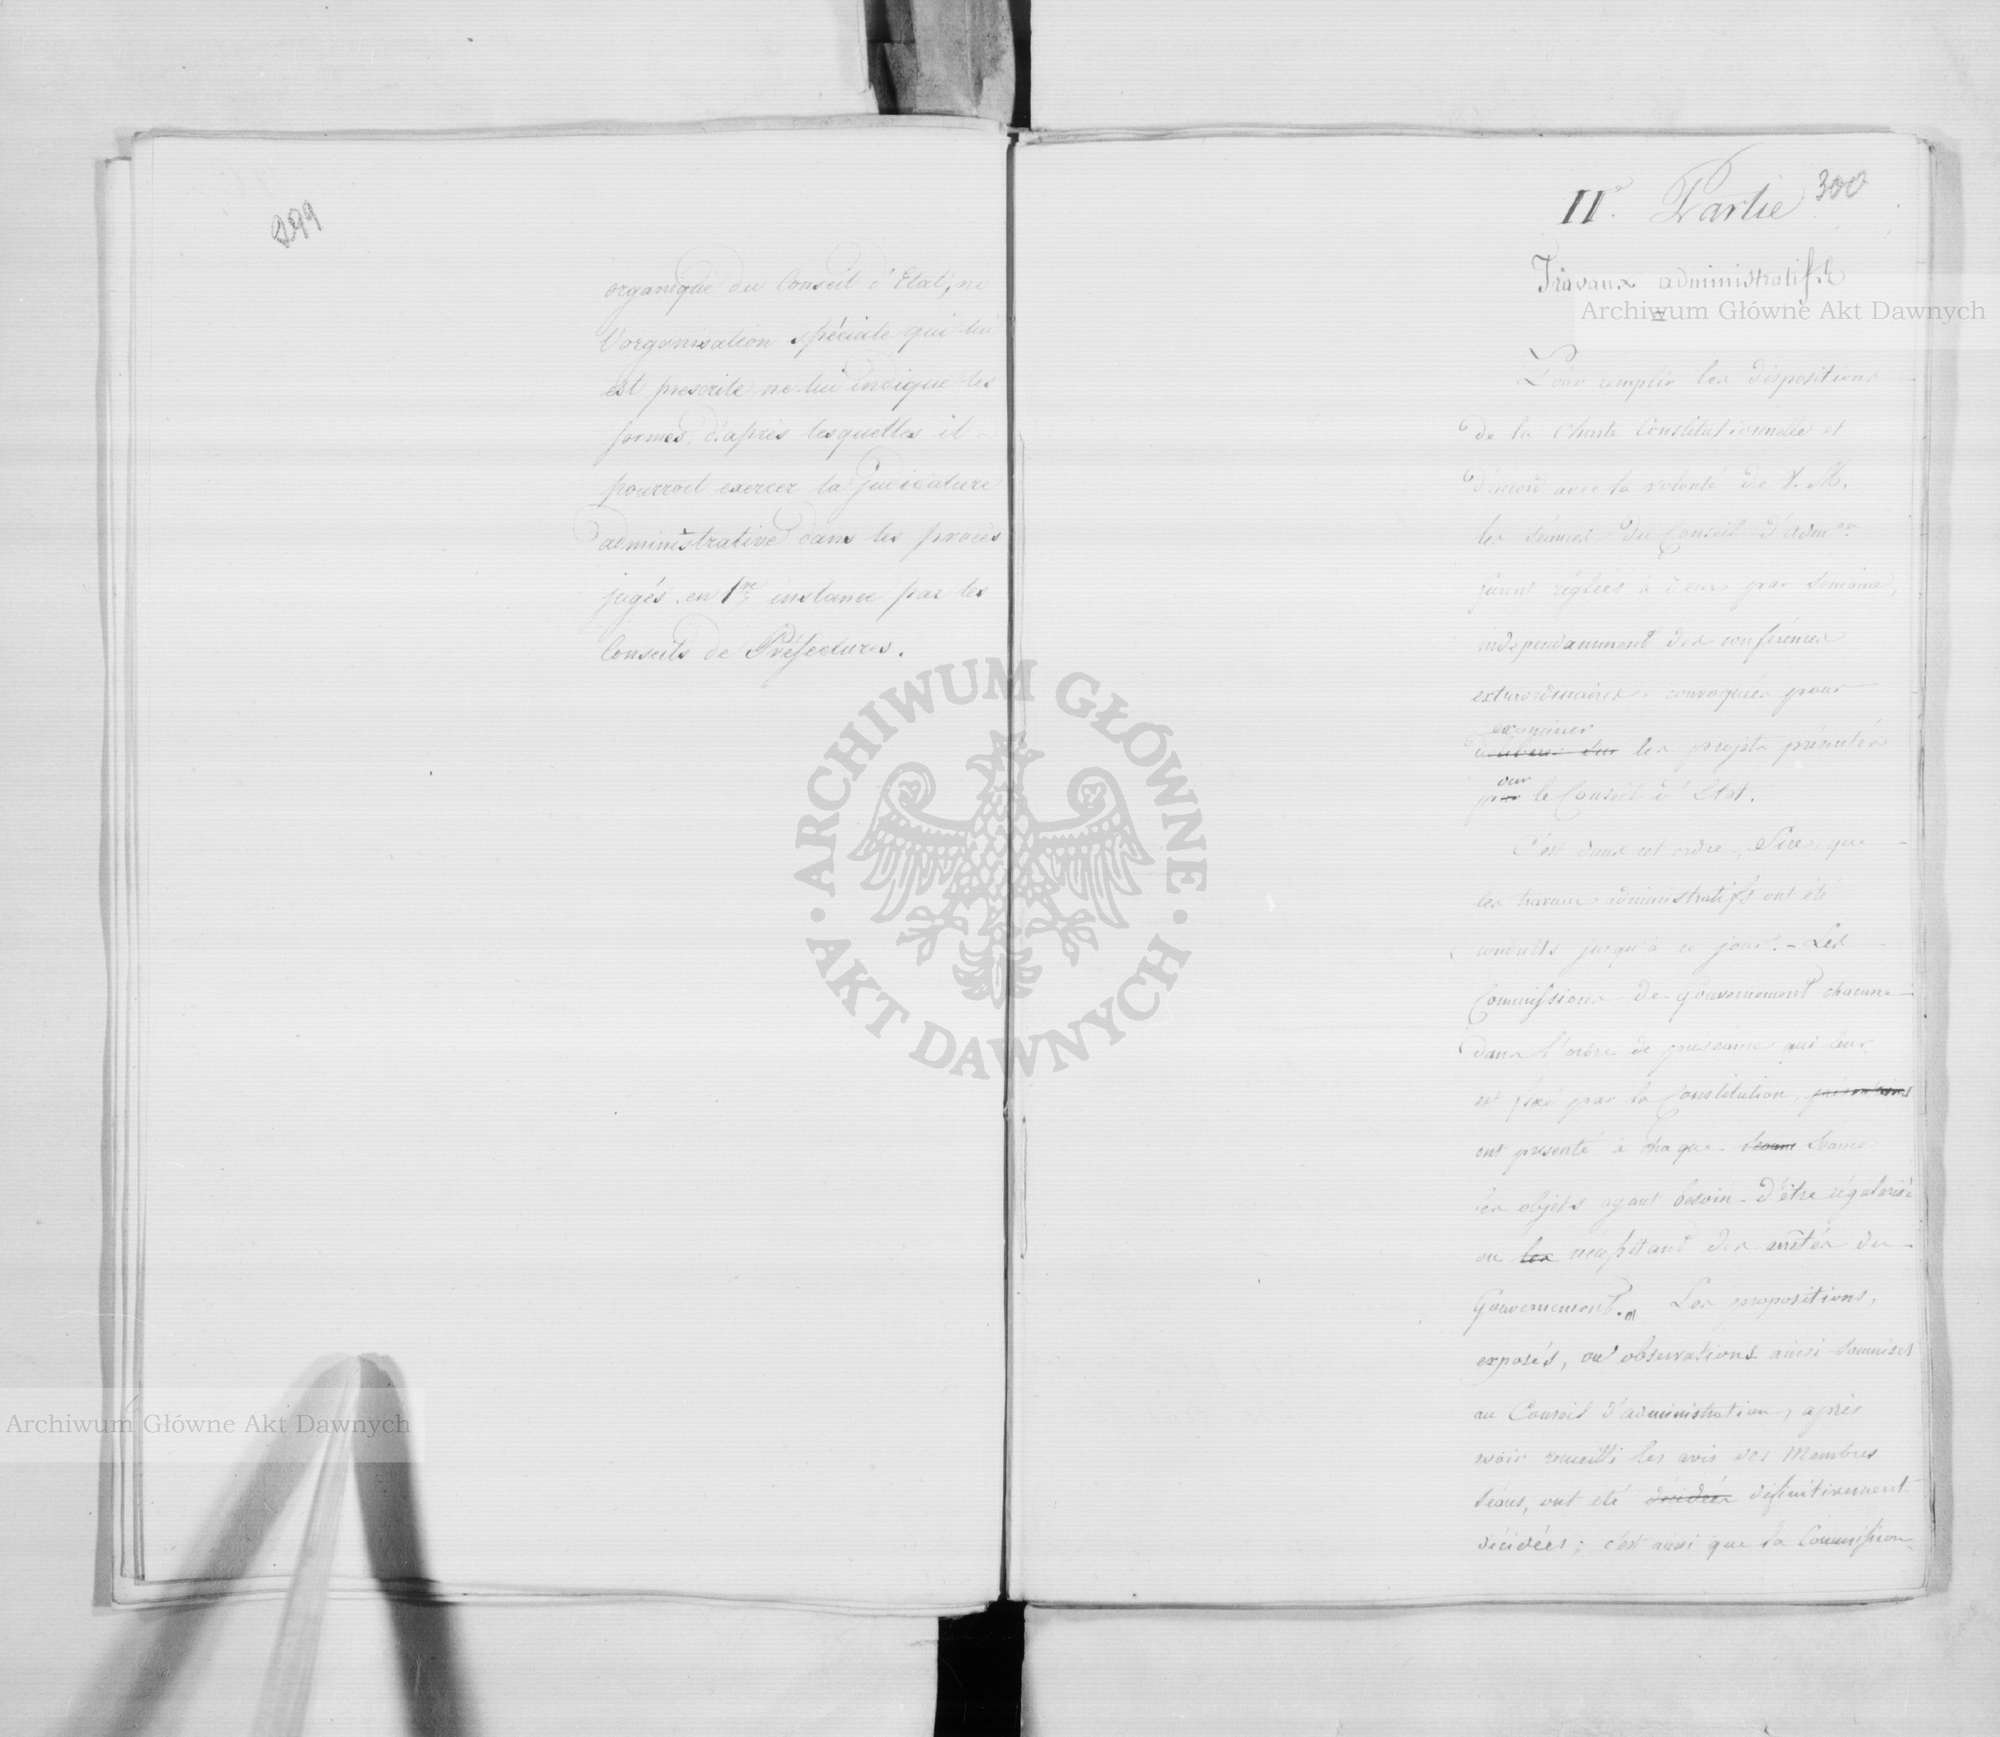 299
organique du Conseil d'Etat, ni
l'organisation spéciale qui lui
est prescrite ne lui indique les
formes, d'après lesquelles il
pourroit exercer la Judicature
administrative dans les procès
jugés en 1re instance par les
Conseils de Préfectures.
300
IIe Partie
Travaux administratifs
Pour remplir les dispositions
de la Charte Constitutionnelle et
d'accord avec la volonté de V. M.
les séances du Conseil d'Admon
furent réglées à deux par semaine,
independamment des conférences
extraordinaires, convoquées pour
examiner
deliberer sur les projets présentés
par le Conseil d'Etat.
C'est dans cet ordre, Sire, que
les travaux administratifs ont été
conduits jusqu'à ce jour. - Les
Commissions de gouvernement chacune
dans l'ordre de qui leur
est fixé par la Constitution,
ont presenté à chaque Seance Seance
les objets ayant besoin d'être régularisé
ou les nécessitant des arrêtés du
Gouvernement. Les propositions,
exposés, ou observations ainsi soumises
au Conseil d'administration, après
avoir recueilli les avis des Membres
séans, ont été décidées définitivement
décidées; c'est ainsi que la Commission
Archiwum Główne Akt Dawnych
Archiwum Główne Akt Dawnych
ARCHIWUM GŁÓWNE
AKT DAWNYCH